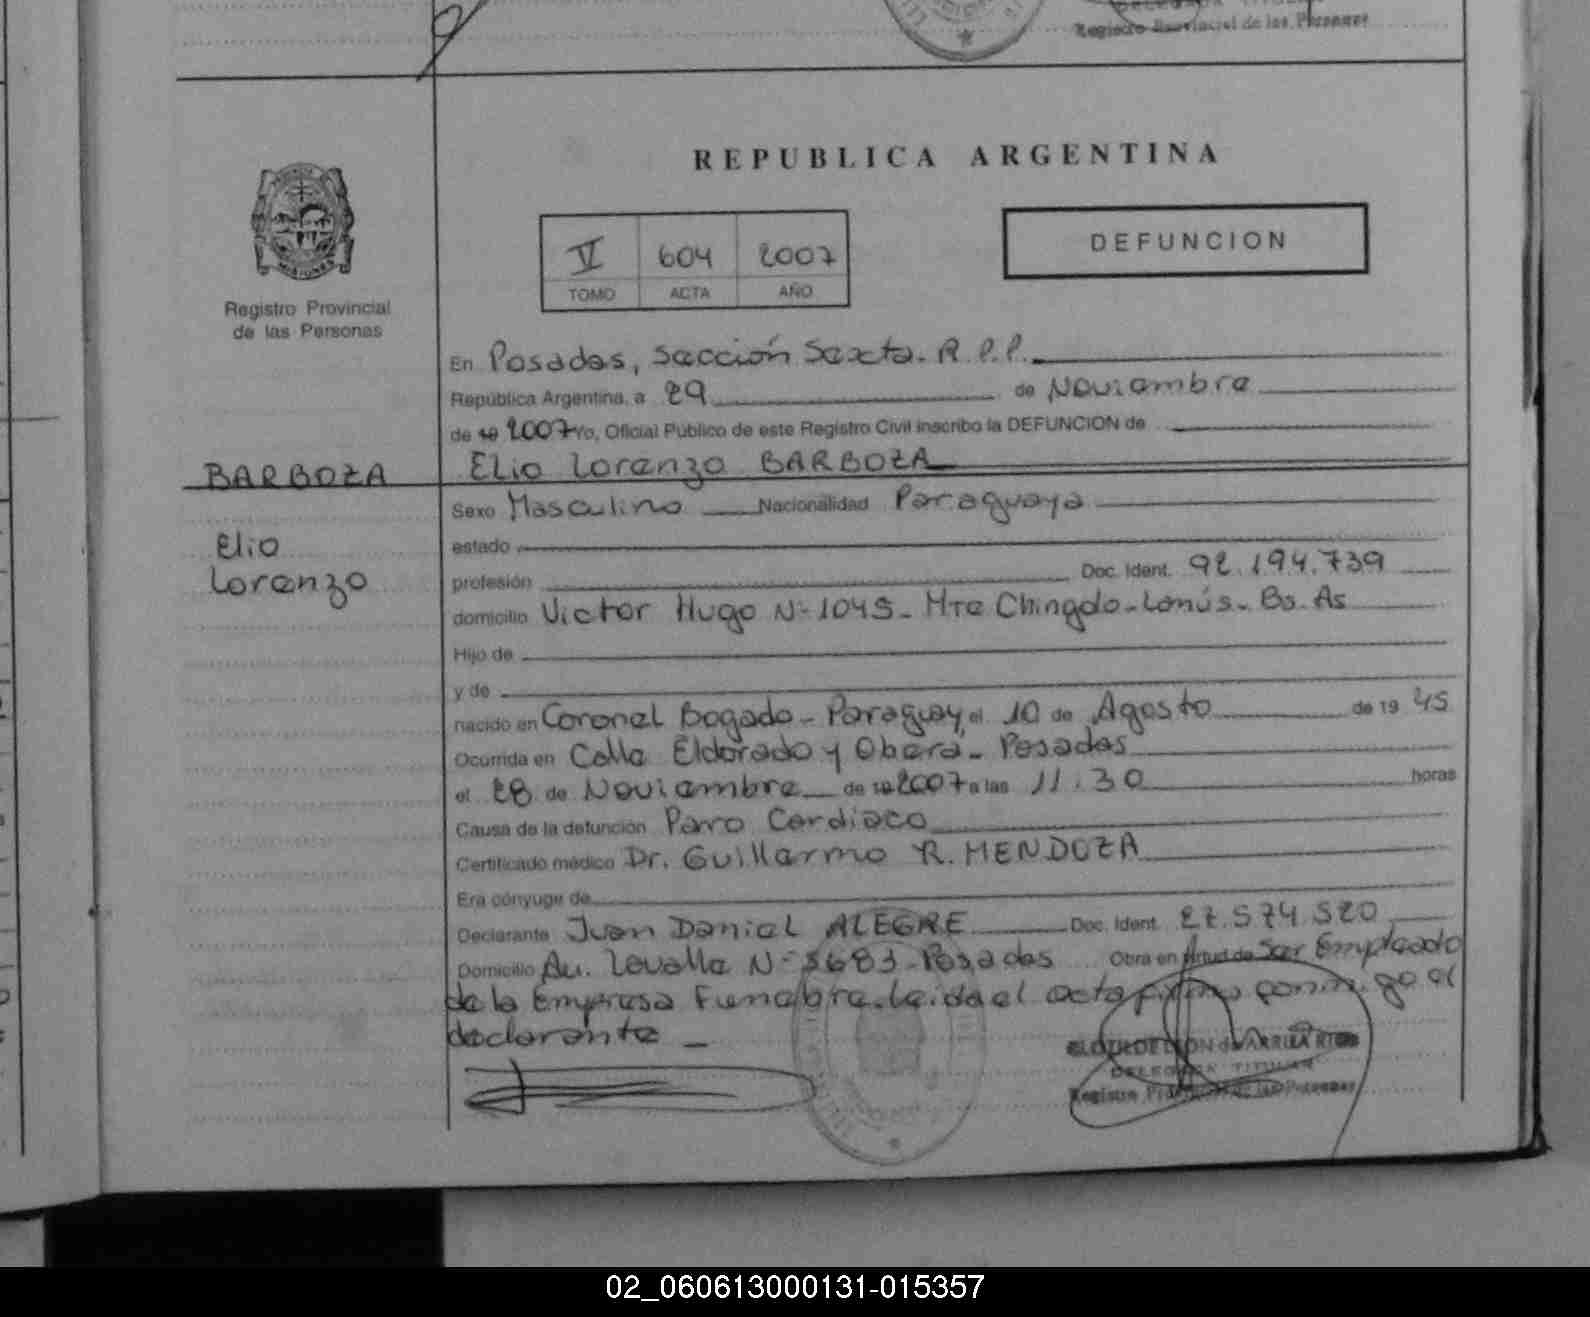 Registro Provincial de las Personas
REPUBLICA ARGENTINA
V 604 2007
TOMO ACTA AÑO
DEFUNCION
MISIONES
Registro Provincial
de las Personas
BARBOZA
Elio
Lorenzo
En Posadas, Sección Sexta. R.P.P.
República Argentina, a 29 de Noviembre
de 19 2007 Yo, Oficial Público de este Registro Civil inscribo la DEFUNCION de
Elio Lorenzo BARBOZA
Sexo Masculino Nacionalidad Paraguaya
estado
profesión Doc. Ident. 92.194.739
domicilio Victor Hugo Nº 1045 - Mte Chingolo - Lanús - Bs. As
Hijo de
y de
nacido en Coronel Bogado - Paraguay, el 10 de Agosto de 19 45
Ocurrida en Calle Eldorado y Obera - Posadas
el 28 de Noviembre de 19 2007 a las 11:30 horas
Causa de la defunción Paro Cardiaco
Certificado médico Dr. Guillermo R. MENDOZA
Era cónyuge de
Declarante Juan Daniel ALEGRE Doc. Ident. 27.574.520
Domicilio Av. Lavalle Nº 3683 - Posadas Obra en virtud de Ser Empleado
de la Empresa Funebre. Leida el acta firma conmigo el
declarante -
DELEGADA TITULAR
Registro Provincial de las Personas
02_060613000131-015357